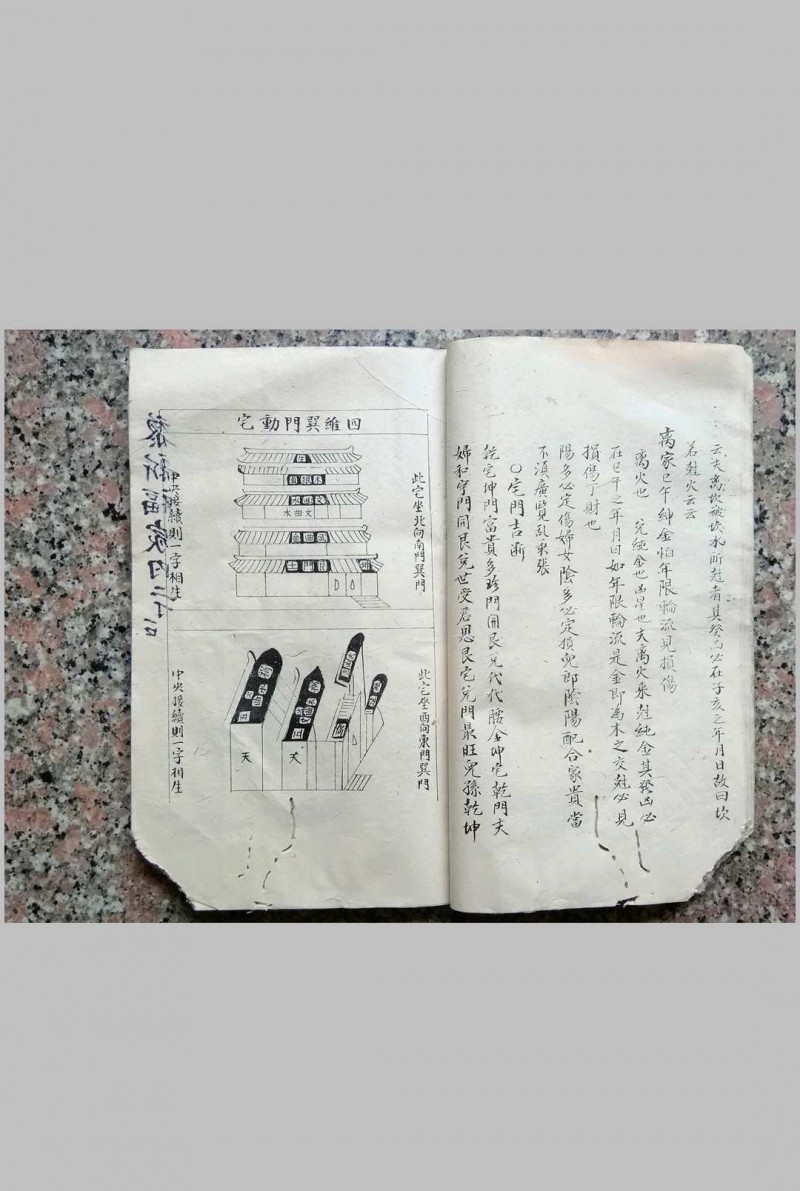 云夫离坎破坎水所尅者其癸凶必在子亥之年月日故曰坎
若尅火云云
离家巳午紳金怕年限輪流見損傷
离火也 兌純金也凶星也夫离火來尅純金其發凶必
在巳午之年月日如年限輪流是金即為木之交尅必見
損傷丁財也
陽多必定傷婦女陰多必定損兒郎陰陽配合家貴當
不須廣覽乱求張
〇宅門吉断
乾宅坤門富貴多珍門開艮兌代代腰金坤宅乾門夫
婦和宅門開艮兌世受君恩艮宅兌門最旺兒孫乾坤
四維巽門動宅
此宅坐北向南門巽門
文曲水
中央接續則一字相生
此宅坐西向東門巽門
天
天
中央接續則一字相生